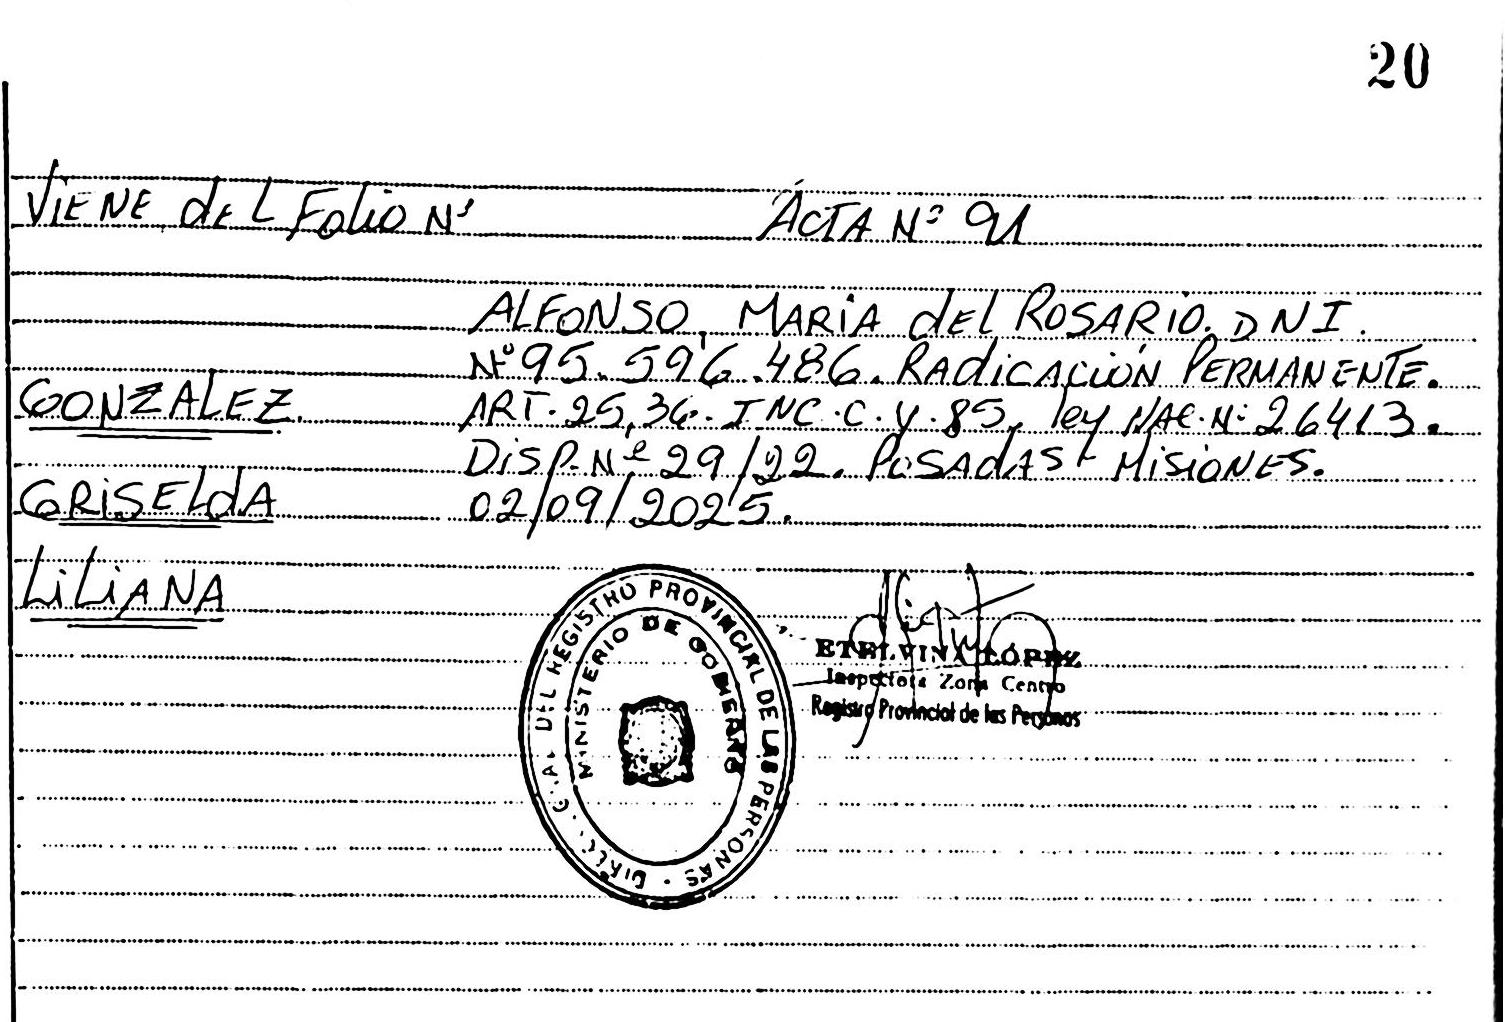 20
VIENE dEL Folio Nº
ACTA Nº 91
ALFONSO, MARIA dEL ROSARIO. DNI.
Nº 95.596.486. RADICACIÓN PERMANENTE.
GONZALEZ
ART. 25,36. INC. C. y. 85, ley NAC. Nº 26413.
DISP. Nº 29/22. POSADAS - MISIONES.
GRISELdA
02/09/2025.
LILIANA
DIREC. GRAL. DEL REGISTRO PROVINCIAL DE LAS PERSONAS
MINISTERIO DE GOBIERNO
ETELVINA LÓPEZ
Inspectora Zona Centro
Registro Provincial de las Personas